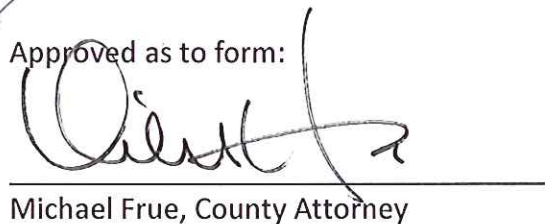 Approved as to form:
Michael Frue, County Attorney